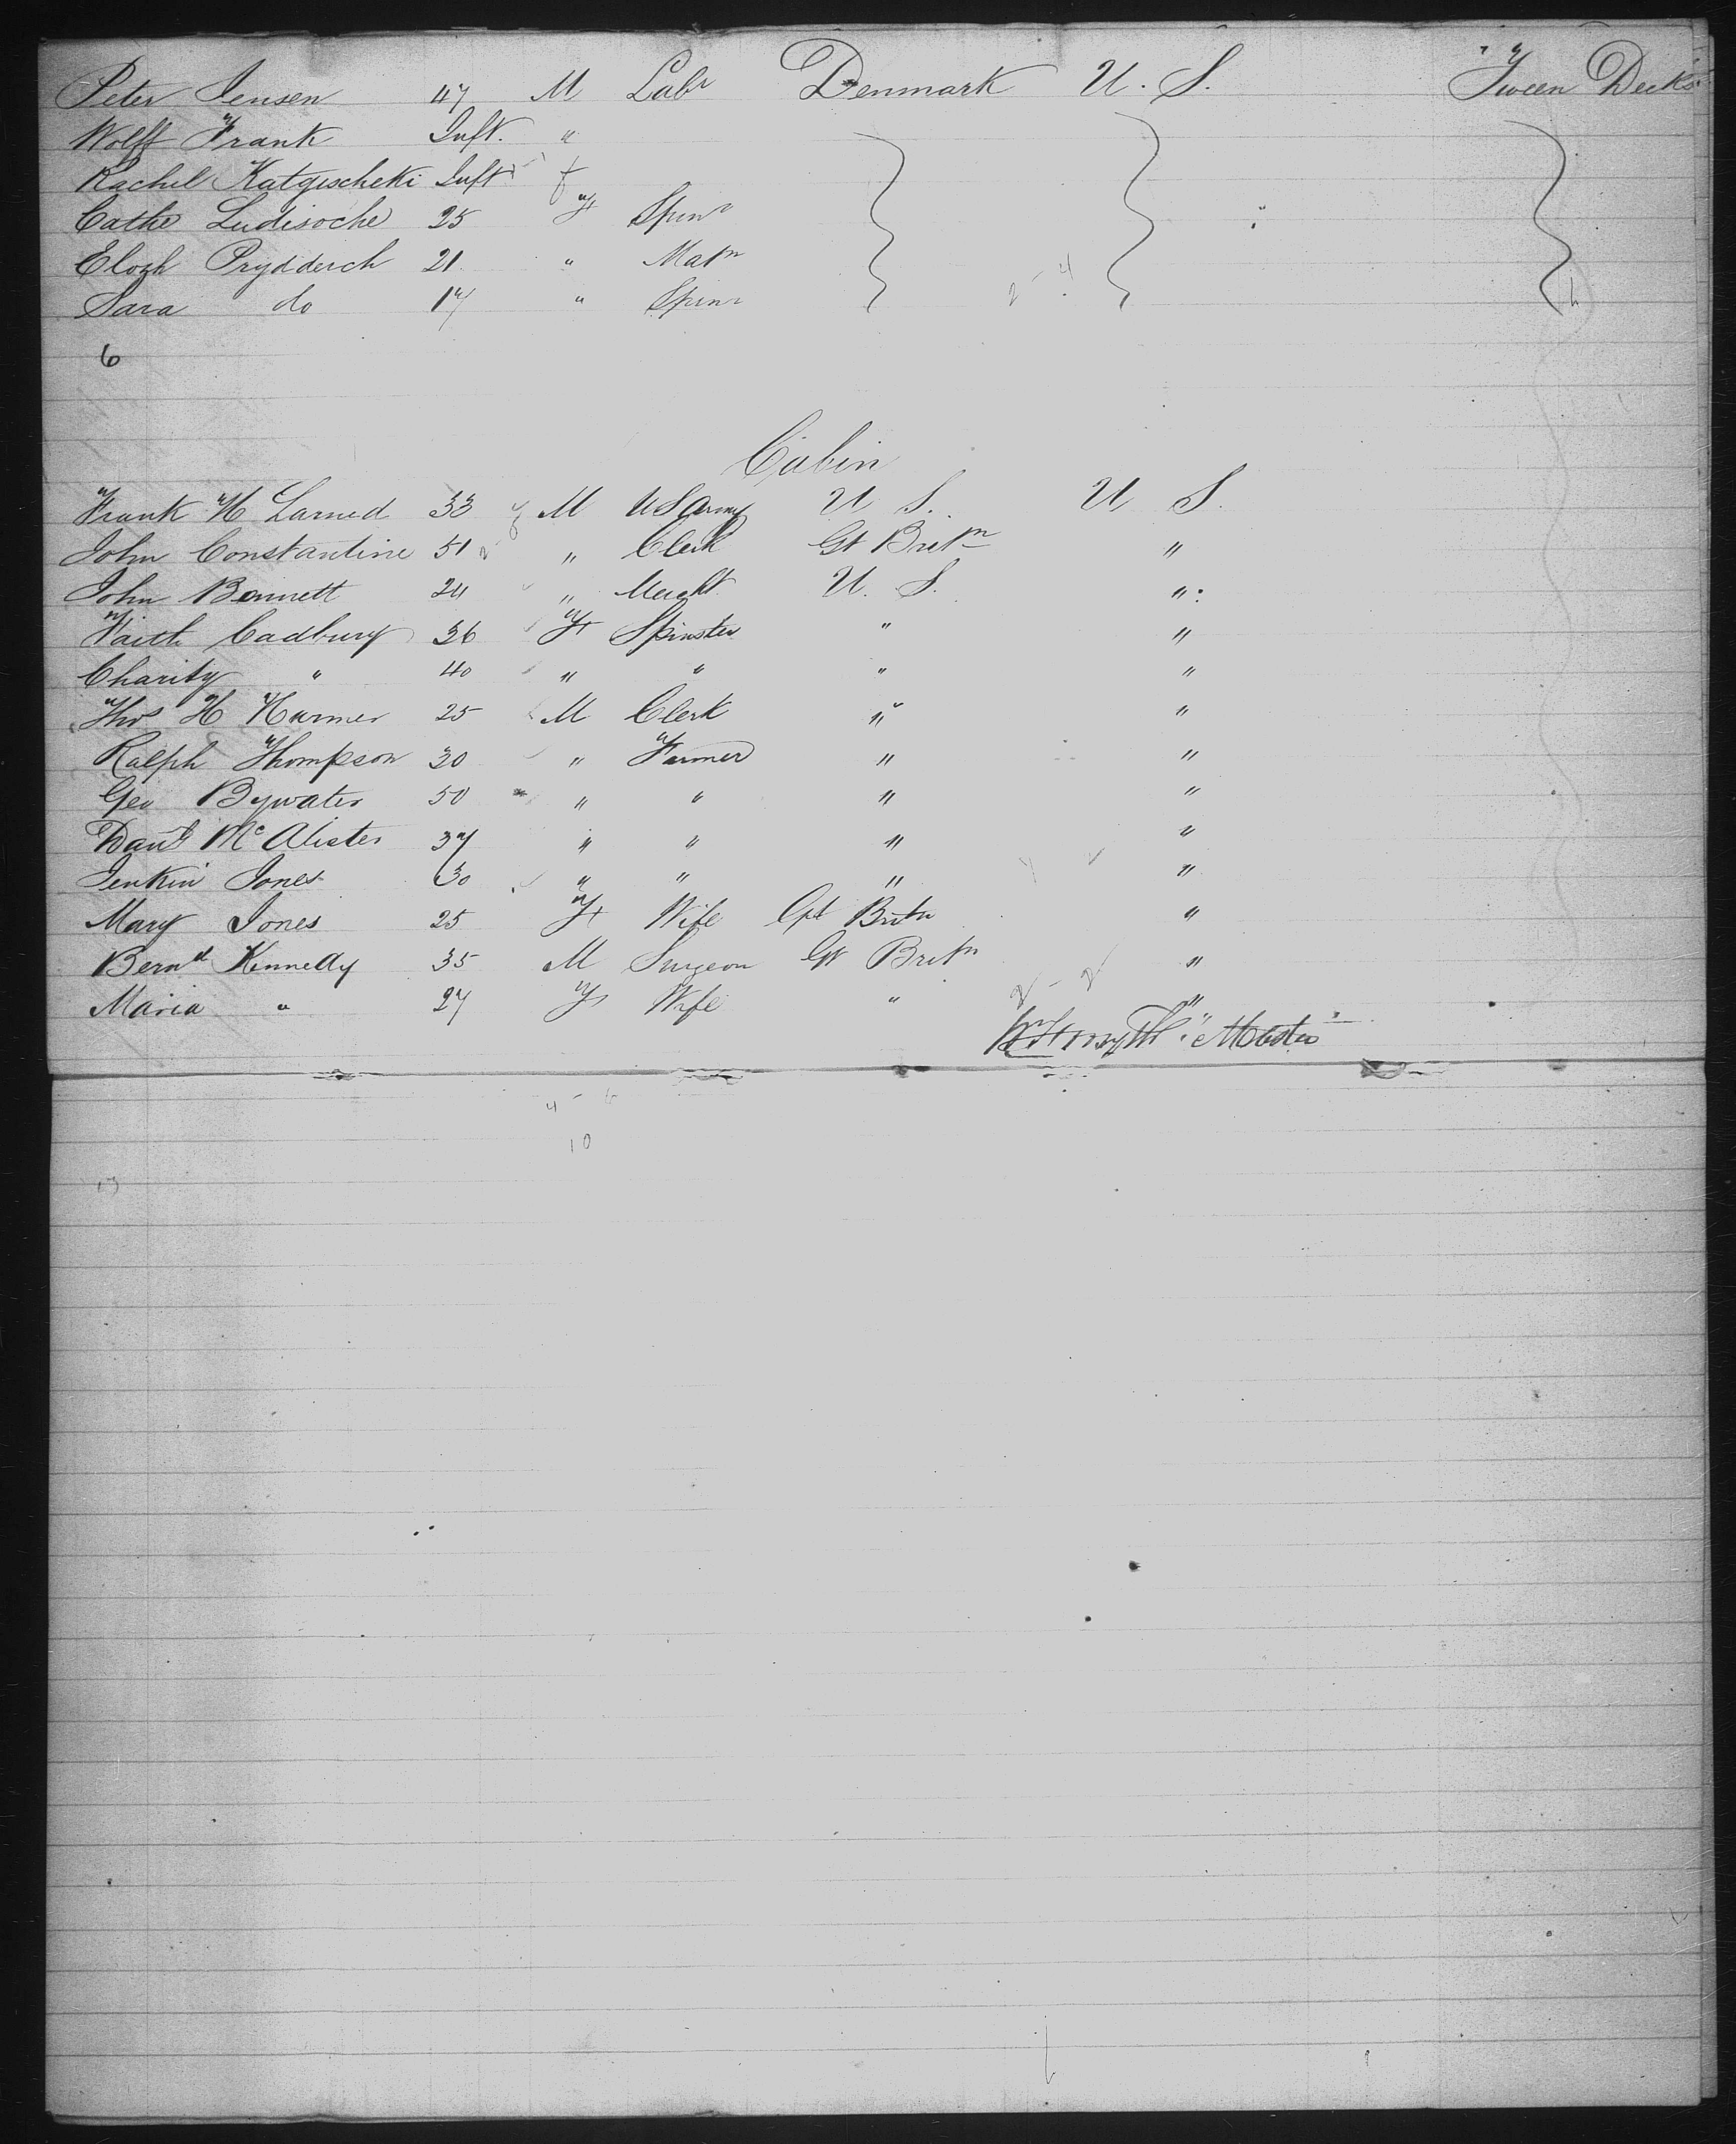 Peter Jensen 47 M Labr Denmark U. S. Tween Decks
Wolff Frank Inft. "
Rachel Katgischeki Inft f
Cathe Ludisoche 25 F Spinr
Elozh Prydderch 21 " Matn
Sara do 17 " Spinr
6
Cabin
Frank H Larned 33 M US Army U S. U S.
John Constantine 51 " Clerk Gt Britn "
John Bennett 24 " Mercht U. S. "
Faith Cadbury 36 F Spinster " "
Charity " 40 " " " "
Thos H Harmer 25 M Clerk " "
Ralph Thompson 30 " Farmer " "
Geo Bywater 50 " " " "
Danl McAlister 37 " " " "
Jenkin Jones 30 " " " "
Mary Jones 25 F Wife Gt Britn "
Bernd Kennedy 35 M Surgeon Gt Britn "
Maria " 27 F Wife " "
Master
4 - 6
10